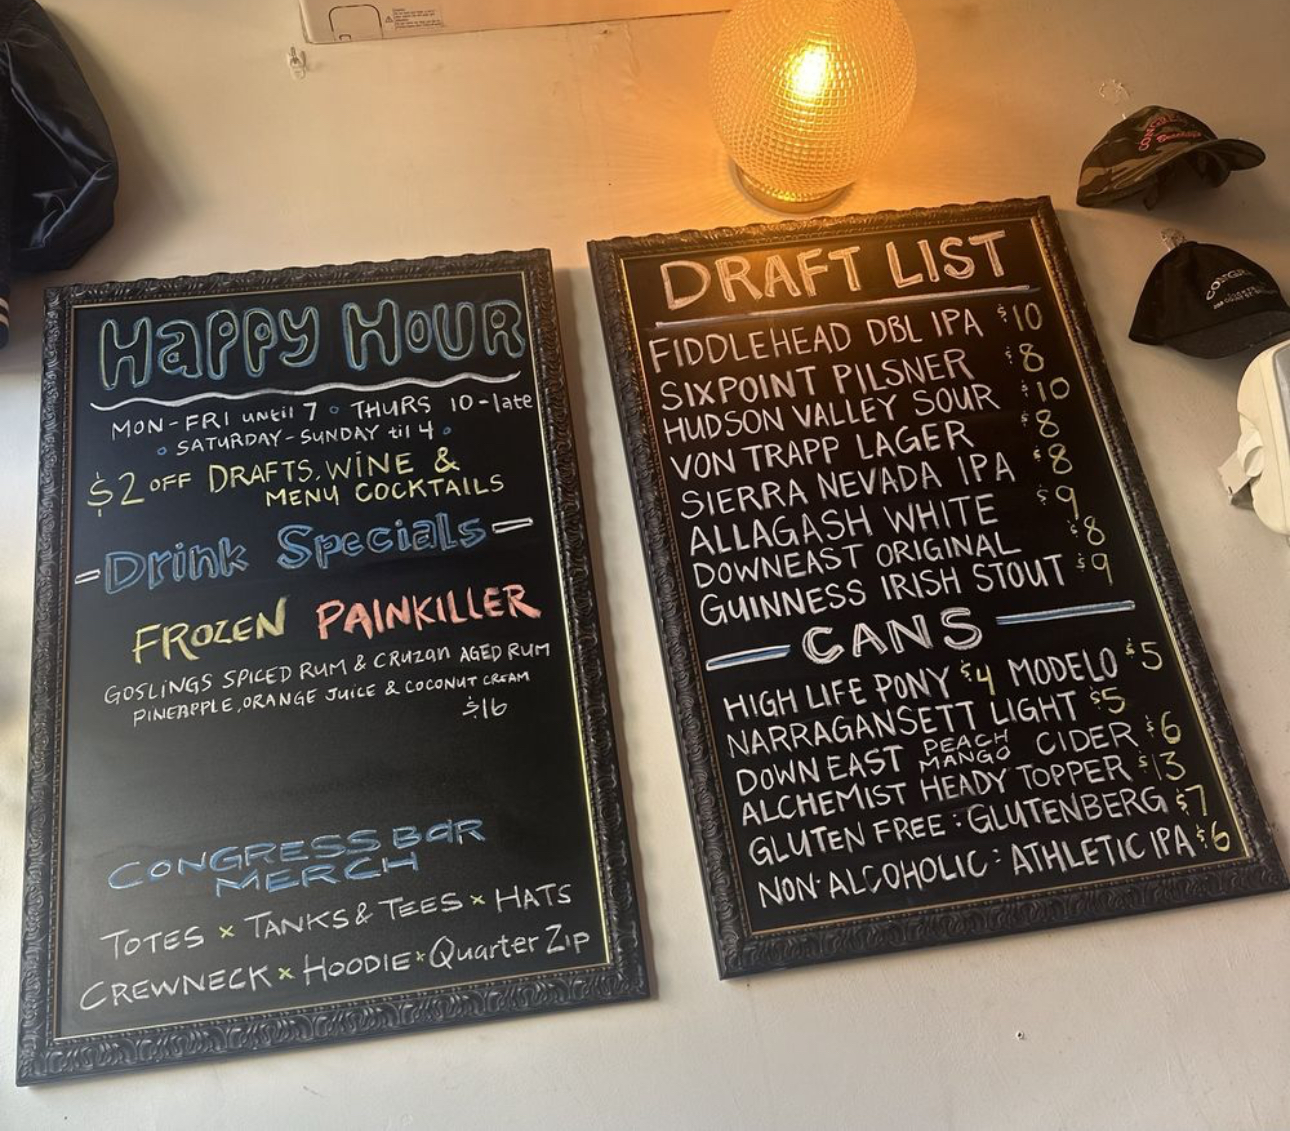 Happy Hour
MON-FRI until 7 • THURS 10-late
• SATURDAY-SUNDAY til 4 •
$2 OFF DRAFTS, WINE &
MENU COCKTAILS
-Drink Specials-
FROZEN PAINKILLER
GOSLINGS SPICED RUM & CRUZAN AGED RUM
PINEAPPLE, ORANGE JUICE & COCONUT CREAM
$16
CONGRESS BAR
MERCH
TOTES x TANKS & TEES x HATS
CREWNECK x HOODIE x Quarter Zip
DRAFT LIST
FIDDLEHEAD DBL IPA $10
SIXPOINT PILSNER $8
HUDSON VALLEY SOUR $10
VON TRAPP LAGER $8
SIERRA NEVADA IPA $8
ALLAGASH WHITE $9
DOWNEAST ORIGINAL $8
GUINNESS IRISH STOUT $9
CANS
HIGH LIFE PONY $4 MODELO $5
NARRAGANSETT LIGHT $5
DOWNEAST PEACH MANGO CIDER $6
ALCHEMIST HEADY TOPPER $13
GLUTEN FREE: GLUTENBERG $7
NON-ALCOHOLIC: ATHLETIC IPA $6